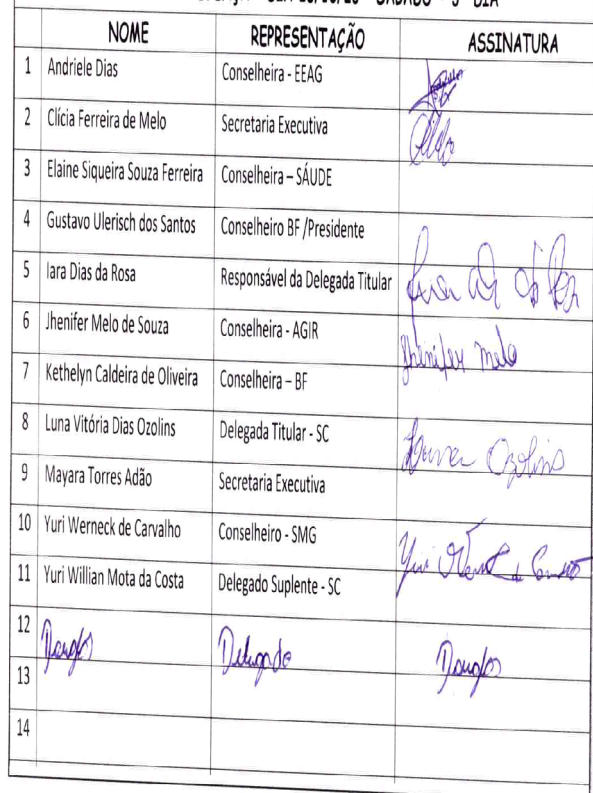 SÁBADO - 3º DIA
NOME REPRESENTAÇÃO ASSINATURA
1 Andriele Dias Conselheira - EEAG
2 Clícia Ferreira de Melo Secretaria Executiva
3 Elaine Siqueira Souza Ferreira Conselheira – SÁUDE
4 Gustavo Ulerisch dos Santos Conselheiro BF /Presidente
5 Iara Dias da Rosa Responsável da Delegada Titular
6 Jhenifer Melo de Souza Conselheira - AGIR Jhenifer Melo
7 Kethelyn Caldeira de Oliveira Conselheira – BF
8 Luna Vitória Dias Ozolins Delegada Titular - SC Luna Ozolins
9 Mayara Torres Adão Secretaria Executiva
10 Yuri Werneck de Carvalho Conselheiro - SMG
11 Yuri Willian Mota da Costa Delegado Suplente - SC
12 Douglas Delegado Douglas
13
14